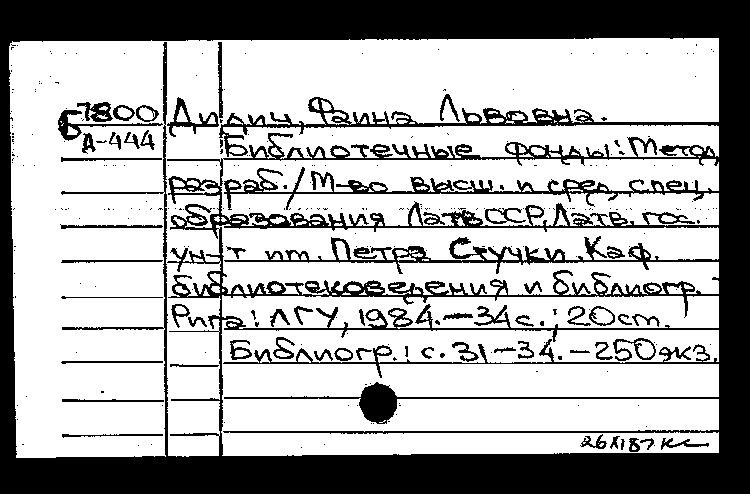 Б 7800
А-444
Дилич, Фаина Львовна.
Библиотечные фонды: Метод.
разраб./М-во высш. и сред. спец.
образования ЛатвССР, Латв. гос.
ун-т им. Петра Стучки. Каф.
библиотековедения и библиогр. -
Рига: ЛГУ, 1984.-34с.; 20см.
Библиогр.: с. 31-34.-250экз.